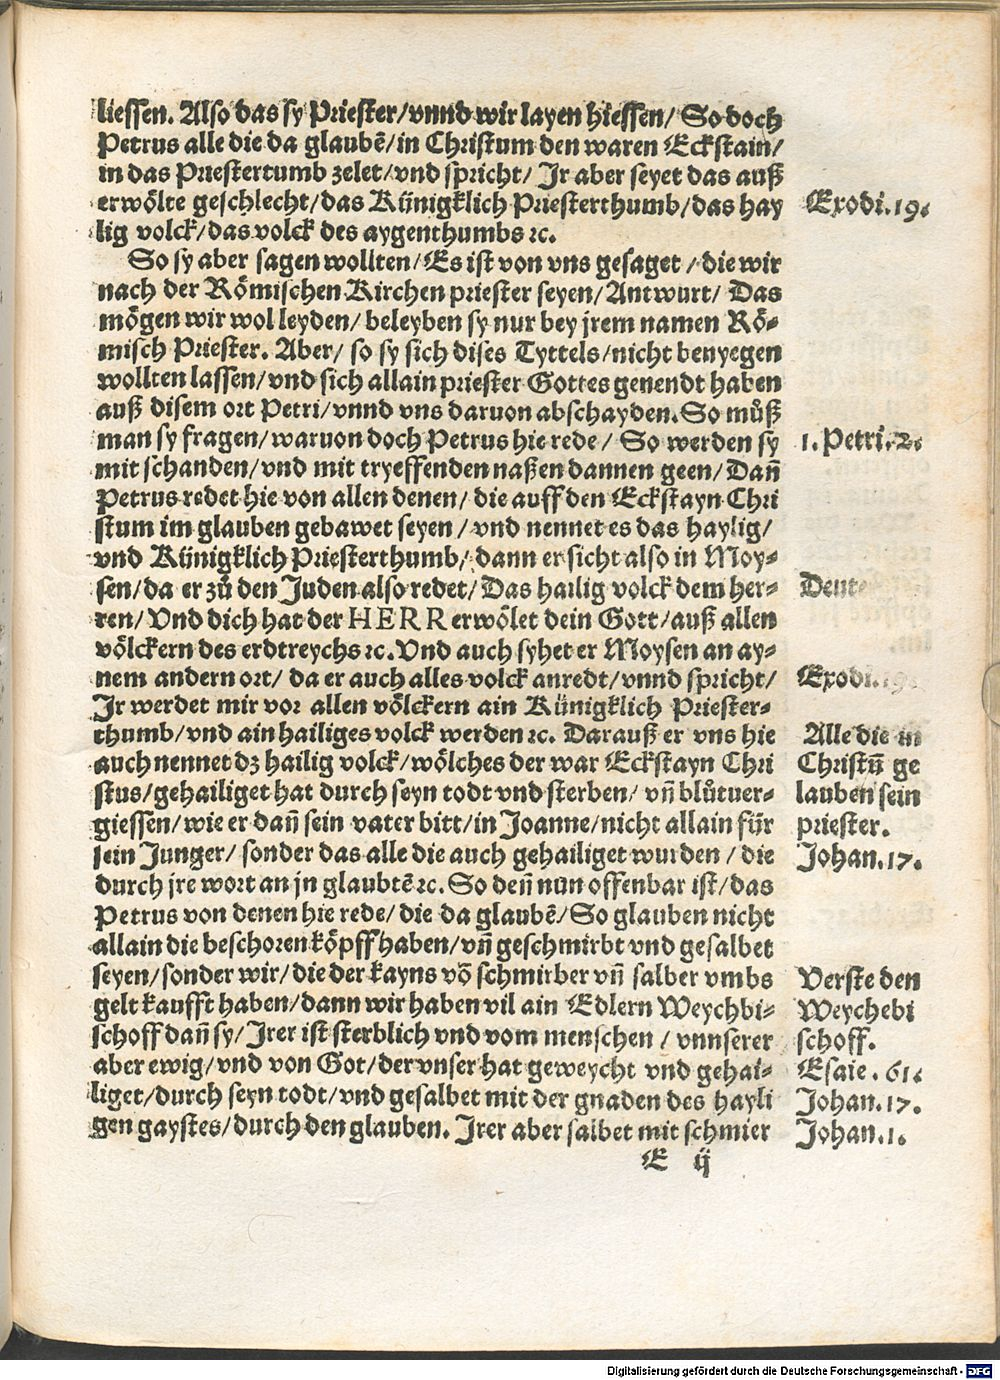 liessen. Also das sy Priester/vnnd wir layen hiessen/ So doch
Petrus alle die da glaubē/in Christum den waren Eckstain/
in das Priestertumb zelet/vnd spricht/ Jr aber seyet das auß
erwölte geschlecht/das Künigklich Priesterthumb/das hay
lig volck/das volck des aygenthumbs ꝛc.
Exodi.19.
So sy aber sagen wollten/Es ist von vns gesaget /die wir
nach der Römischen Kirchen priester seyen/Antwurt/ Das
mögen wir wol leyden/ beleyben sy nur bey jrem namen Rö-
misch Priester. Aber/ so sy sich dises Tyttels/nicht benyegen
wollten lassen/vnd sich allain priester Gottes genendt haben
auß disem ort Petri/vnnd vns daruon abschayden. So můß
man sy fragen/waruon doch Petrus hie rede/ So werden sy
1. Petri.2.
mit schanden/vnd mit tryeffenden naßen dannen geen/Dañ
Petrus redet hie von allen denen/ die auff den Eckstayn Chri
stum im glauben gebawet seyen/ vnd nennet es das haylig/
vnd Künigklich Priesterthumb/ dann er sicht also in Moy-
sen/da er zů den Juden also redet/Das hailig volck dem her-
ren/Vnd dich hat der HERR erwölet dein Gott/auß allen
völckern des erdtreychs ꝛc. Vnd auch syhet er Moysen an ay-
nem andern ort/ da er auch alles volck anredt/vnnd spricht/
Deute
Exodi.19.
Jr werdet mir vor allen völckern ain Künigklich Priester-
thumb/vnd ain hailiges volck werden ꝛc. Darauß er vns hie
auch nennet dz hailig volck/wölches der war Eckstayn Chri
stus/gehailiget hat durch seyn todt vnd sterben/ vñ blůtuer-
giessen/wie er dañ sein vater bitt/in Joanne/nicht allain für
sein Junger/ sonder das alle die auch gehailiget wurden / die
Alle die in
Christū ge
lauben sein
priester.
Johan.17.
durch jre wort an jn glaubtē ꝛc. So deñ nun offenbar ist/das
Petrus von denen hie rede/die da glaubē/So glauben nicht
allain die beschoren köpff haben/vñ geschmirbt vnd gesalbet
seyen/sonder wir/die der kayns vō schmirber vñ salber vmbs
gelt kaufft haben/dann wir haben vil ain Edlern Weychbi-
schoff dañ sy/Jrer ist sterblich vnd vom menschen / vnnserer
aber ewig/vnd von Got/der vnser hat geweycht vnd gehai-
liget/durch seyn todt/vnd gesalbet mit der gnaden des hayli
gen gaystes/durch den glauben. Jrer aber salbet mit schmier
Verste den
Weychebi
schoff.
Esaie.61.
Johan.17.
Johan.1.
E ij
Digitalisierung gefördert durch die Deutsche Forschungsgemeinschaft - DFG